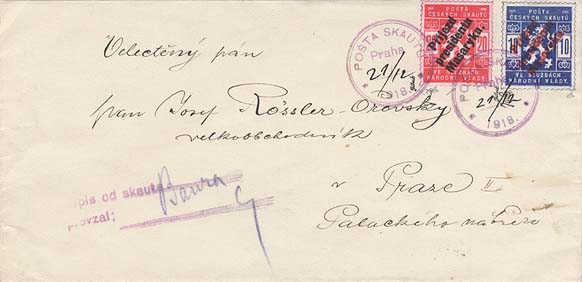 POŠTA
ČESKÝCH SKAUTŮ
20
Příjezd
presidenta
Masaryka.
VE SLUŽBÁCH
NÁRODNÍ VLÁDY.
POŠTA
ČESKÝCH SKAUTŮ
10 10
VE SLUŽBÁCH
NÁRODNÍ VLÁDY.
POŠTA SKAUTŮ
Praha
21/12
1918.
Praha
21/12
1918.
Velectěný pán
pan Josef Rössler-Ořovský
velkoobchodník
v Praze II
Palackého nábřeží
pis od skauta
převzal: